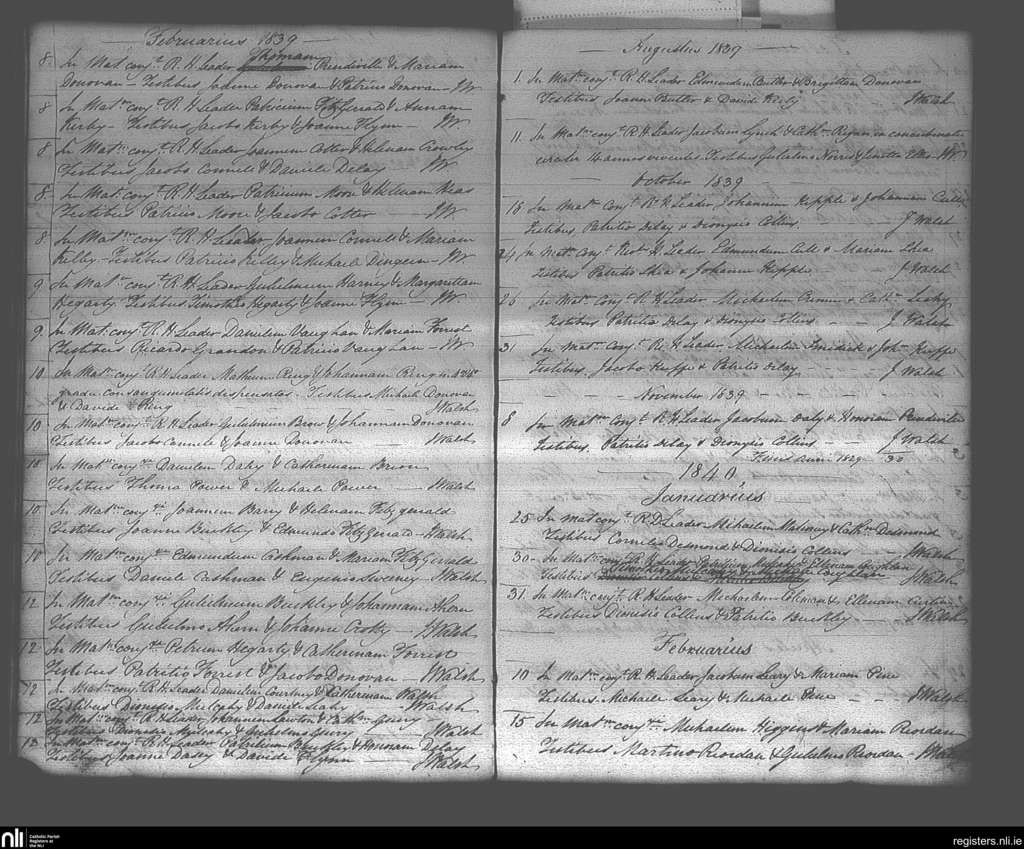 Februarius 1839
8 In Mat. conj.t R. H. Leader Thomam Prendiville & Mariam
Donovan - Testibus Joanne Donovan & Patricio Donovan - JW
8 In Mat.m conj.t R. H. Leader Patricium FitzGerald & Annam
Kirby - Testibus Jacobo Kirby & Joanne Flynn - JW.
8 In Mat.m conj.t R. H. Leader Joannem Cotter & Helenam Crowly
Testibus Jacobo Connell & Daniele Delay - JW
8 In Mat. conj.t R. H. Leader Patricium Moore & Helenam Heas
Testibus Patricio Moore & Jacobo Cotter - JW
8 In Mat.m conj.t R. H. Leader Joannem Connell & Mariam
Kelly - Testibus Patricio Kelley & Michaele Dinneen - JW
9 In Mat.m conj.t R. H. Leader Gulielmum Harney & Margaritam
Hegarty Testibus Timotheo Hegarty & Joanne Flynn - JW
9 In Mat. conj.t R. H. Leader Danielem Vaughan & Mariam Forrest
Testibus Ricardo Grandon & Patricio Vaughan - JW
10 In Mat.m conj.t R. H. Leader Matheum Ring & Johannam Ring in
gradu consanguinitatis dispensatis - Testibus Michaele Donovan
& Davide Ring J Walsh
10 In Mat.m conj.t R. H. Leader Gulielmum Brow & Johannam Donovan
Testibus Jacobo Connell & Joanne Donovan - J Walsh
10 In Mat.m conj. Danielem Daly & Catherinam Brien
Testibus Thoma Power & Michaele Power - J Walsh
10 In Mat.m conj. Joannem Barry & Helenam Fitzgerald
Testibus Joanne Buckley & Edmundo FitzGerald - J Walsh
10 In Mat.m conj. Edmundum Cashman & Mariam FitzGerald
Testibus Daniele Cashman & Eugenio Sweeney - J Walsh
12 In Mat.m conj. Gulielmum Buckley & Johannam Ahern
Testibus Gulielmo Ahern & Johanne Crotty - J Walsh
12 In Mat.m conj. Petrum Hegarty & Catherinam Forrest
Testibus Patritio Forrest & Jacobo Donovan - J Walsh
12 In Mat.m conj. R. H. Leader Danielem Courtney & Catherinam Walsh
Testibus Dionisio Mulcahy & Daniele Leahy - J Walsh
12 In Mat.m conj.t R. H. Leader Joannem Lawton & Cath.m Geary
Testibus Dionisio Mulcahy & Gulielmo Geary - J Walsh
13 In Mat.m conj.t R. H. Leader Patritium Buckley & Honoram Delay
Testibus Joanne Daley & Davide Flynn - J Walsh
Augustus 1839
1. In Mat.m conj.t R. H. Leader Edmundum Butler & Brigittam Donovan
Testibus Joanne Butler & Davide Kirby J Walsh
11. In Mat.m conj.t R. H. Leader Jacobum Lynch & Cath.m Regan in concubinatu
circiter 14 annos viventes. Testibus Gulielmo Norris & - JW
October 1839
18 In Mat.m Conj.t R. H. Leader Johannem Kepple & Johannam
Testibus Patritio Delay & Dionysio Collins. - J Walsh
24 In Mat.m Conj.t Rev.d H. Leader Edmundum & Mariam Shea
Testibus Patritio Shea & Johanne Kepple - J Walsh
26 In Mat.m Conj.t R. H. Leader Michaelem & Cath.m Leahy
Testibus Patritio Delay & Dionysio Collins - J Walsh
31 In Mat.m Conj.t R. H. Leader Michaelem & Joh.m Keeffe
Testibus Jacobo Keeffe & Patritio Delay - J Walsh
November 1839
8 In Mat.m conj.t R. H. Leader Jacobum Daly & Honoram Prendiville
Testibus Patritio Delay & Dionysio Collins - - J Walsh
Finis Anni 1839 -
1840
Januarius
25 In Mat. conj.t R. D. Leader Michaelem Mahoney & Cath.m Desmond
Testibus Cornelio Desmond & Dionisio Collins - J Walsh
30 - In Mat.m conj.t R. H. Leader & Ellenam Coughlan
Testibus Coughlan J Walsh
31 In Mat.m conj.t R. H. Leader Michaelem Coleman & Ellenam Curtin
Testibus Dionisio Collins & Patritio Buckley - J Walsh
Februarius
10 In Mat.m conj.t R. H. Leader Jacobum Leary & Mariam Pine
Testibus Michaele Leary & Michaele Pine - - J Walsh
15 In Mat.m conj. Michaelem Higgens & Mariam Riordan
Testibus Martino Riordan & Gulielmo Riordan - J Walsh
nli Catholic Parish
Registers at
the NLI
registers.nli.ie